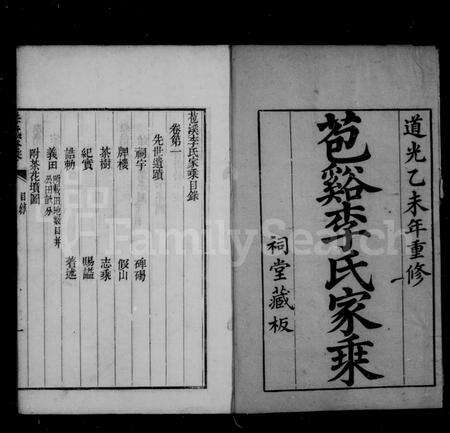 道光乙未年重修
苞谿李氏家乘
祠堂藏板
苞溪李氏家乘目錄
卷第一
先世遺蹟
祠宇 碑碣
牌樓 假山
茶樹 志乘
紀實 賜謚
誥勅 著述
義田
附茶花墳圖
目錄
FamilySearch